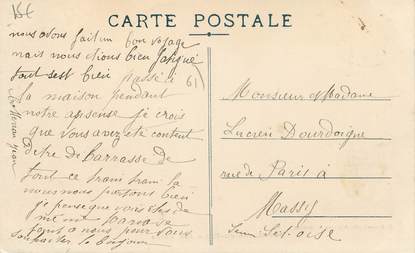 15€
CARTE POSTALE
nous avons fait un bon voyage
mais nous étions bien fatigué
tout sest bien passé a
la maison pendant
notre apsense je crois
que vous avez ete content
detre de barrasse de
tout ce tram tram la
nous nous portons bien
je pense que vous etes de
meme
tous a nous pour vous
souhaiter le bonjour
61
Monsieur Madame
Lucien Dourdoigne
rue de Paris à
Massy
Seine-Set-oise